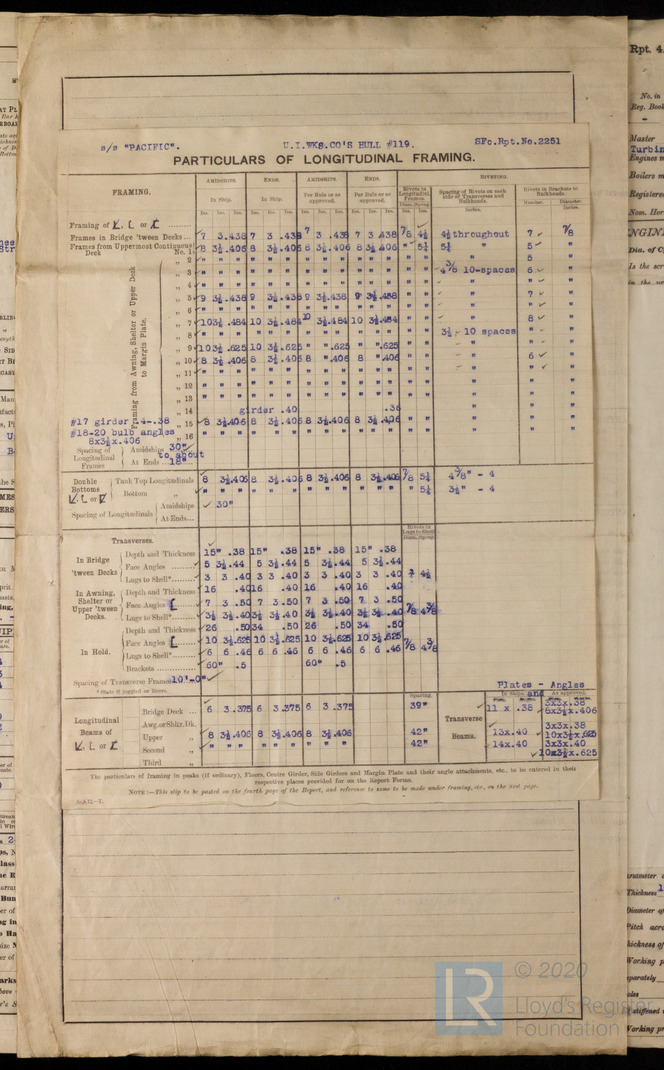 s/s "PACIFIC".   U.I.WKS.CO'S HULL #119.   SFc.Rpt.No.2251
PARTICULARS OF LONGITUDINAL FRAMING.
FRAMING.   AMIDSHIPS.   ENDS.   AMIDSHIPS.   ENDS.   RIVETING.
In Ship.   In Ship.   Per Rule or as approved.   Per Rule or as approved.   Rivets in Longitudinal Frames.   Spacing of Rivets on each side of Transverses and Bulkheads.   Rivets in Brackets to Bulkheads.
Ins. Ins. Ins.   Ins. Ins. Ins.   Ins. Ins. Ins.   Ins. Ins. Ins.   Diam. Spcing   Inches.   Number.   Diameter. Inches.
Framing of
Frames in Bridge 'tween Decks   7 3 .438   7 3 .438   7 3 .438   7 3 .438   7/8 4½   4½ throughout   7   7/8
Frames from Uppermost Continuous Deck No. 1   8 3½ .406   8 3½ .406   8 3½ .406   8 3½ .406   " 5¼   5¼ "   5 "
" 2   " " "   " " "   " " "   " " "   "   5 "
" 3   " " "   " " "   " " "   " " "   4⅜ 10-spaces   6 "
" 4   " " "   " " "   " " "   " " "   "   " "
" 5   9 3½ .438   9 3½ .438   9 3½ .438   9 3½ .438   "   7 "
" 6   " " "   " " "   " " "   " " "   "   " "
" 7   10 3½ .484   10 3½ .484   10 3½ .484   10 3½ .484   "   8 "
" 8   " " "   " " "   " " "   " " "   3½ - 10 spaces   " "
" 9   10 3½ .625   10 3½ .625   " " .625   " " .625   "   " "
" 10   8 3½ .406   8 3½ .406   8 " .406   8 " .406   "   6 "
" 11   " " "   " " "   " " "   " " "   "   " "
" 12   " " "   " " "   " " "   " " "   "   " "
" 13   " " "   " " "   " " "   " " "   "   " "
Framing from Awning, Shelter or Upper Deck to Margin Plate.
" 14   girder .40   .36   "   " "
#17 girder 4-.38   " 15   8 3½ .406   8 3½ .406   8 3½ .406   8 3½ .406   "   " "
#18-20 bulb angles   " 16   " " "   " " "   " " "   " " "   "   " "
8x3½x.406
Spacing of Longitudinal Frames   Amidships   30"
to about
At Ends   18"
Double Bottoms   Tank Top Longitudinals   8 3½ .406   8 3½ .406   8 3½ .406   8 3½ .406   7/8 5¼   4⅜" - 4
Bottom "   " " "   " " "   " " "   " " "   " 5¼   3½" - 4
Spacing of Longitudinals   Amidships   30"
At Ends
Transverses.   Rivets in Lugs to Shell.
Diam. Spcing
In Bridge 'tween Decks   Depth and Thickness   15" .38   15" .38   15" .38   15" .38
Face Angles   5 3½ .44   5 3½ .44   5 3½ .44   5 3½ .44
Lugs to Shell*   3 3 .40   3 3 .40   3 3 .40   3 3 .40   4½
In Awning, Shelter or Upper 'tween Decks.   Depth and Thickness   16 .40   16 .40   16 .40   16 .40
Face Angles   7 3 .50   7 3 .50   7 3 .50   7 3 .50
Lugs to Shell*   3½ 3½ .40   3½ 3½ .40   3½ 3½ .40   3½ 3½ .40   7/8 4⅜
In Hold.   Depth and Thickness   26 .50   34 .50   26 .50   34 .50
Face Angles   10 3½ .625   10 3½ .625   10 3½ .625   10 3½ .625
Lugs to Shell*   6 6 .46   6 6 .46   6 6 .46   6 6 .46   7/8 4⅜
Brackets   60" .5   60" .5
Spacing of Transverse Frames   10'-0"
* State if joggled or liners.
Plates - and Angles
Spacing.   In Ship.   As approved.
Longitudinal Beams of   Bridge Deck   6 3 .375   6 3 .375   6 3 .375   39"   Transverse Beams.   11 x .38   3x3x.38
6x3½x.406
Awg.or Shltr.Dk.   3x3x.38
Upper "   8 3½ .406   8 3½ .406   8 3½ .406   42"   13x.40   10x3½x.625
Second "   " " "   " " "   " " "   42"   14x.40   3x3x.40
Third "   10x3½x.625
The particulars of framing in peaks (if ordinary), Floors, Centre Girder, Side Girders and Margin Plate and their angle attachments, etc., to be entered in their
respective places provided for on the Report Forms.
NOTE :—This slip to be pasted on the fourth page of the Report, and reference to same to be made under framing, etc., on the next page.
Rpt. 4.
No. in
Reg. Book
Master
Turbin
Engines m
Boilers m
Registered
Nom. Hor
Dia. of C
Is the
Thickness
Diameter of
Pitch
Working p
© 2020
LR
Lloyd's Register
Foundation